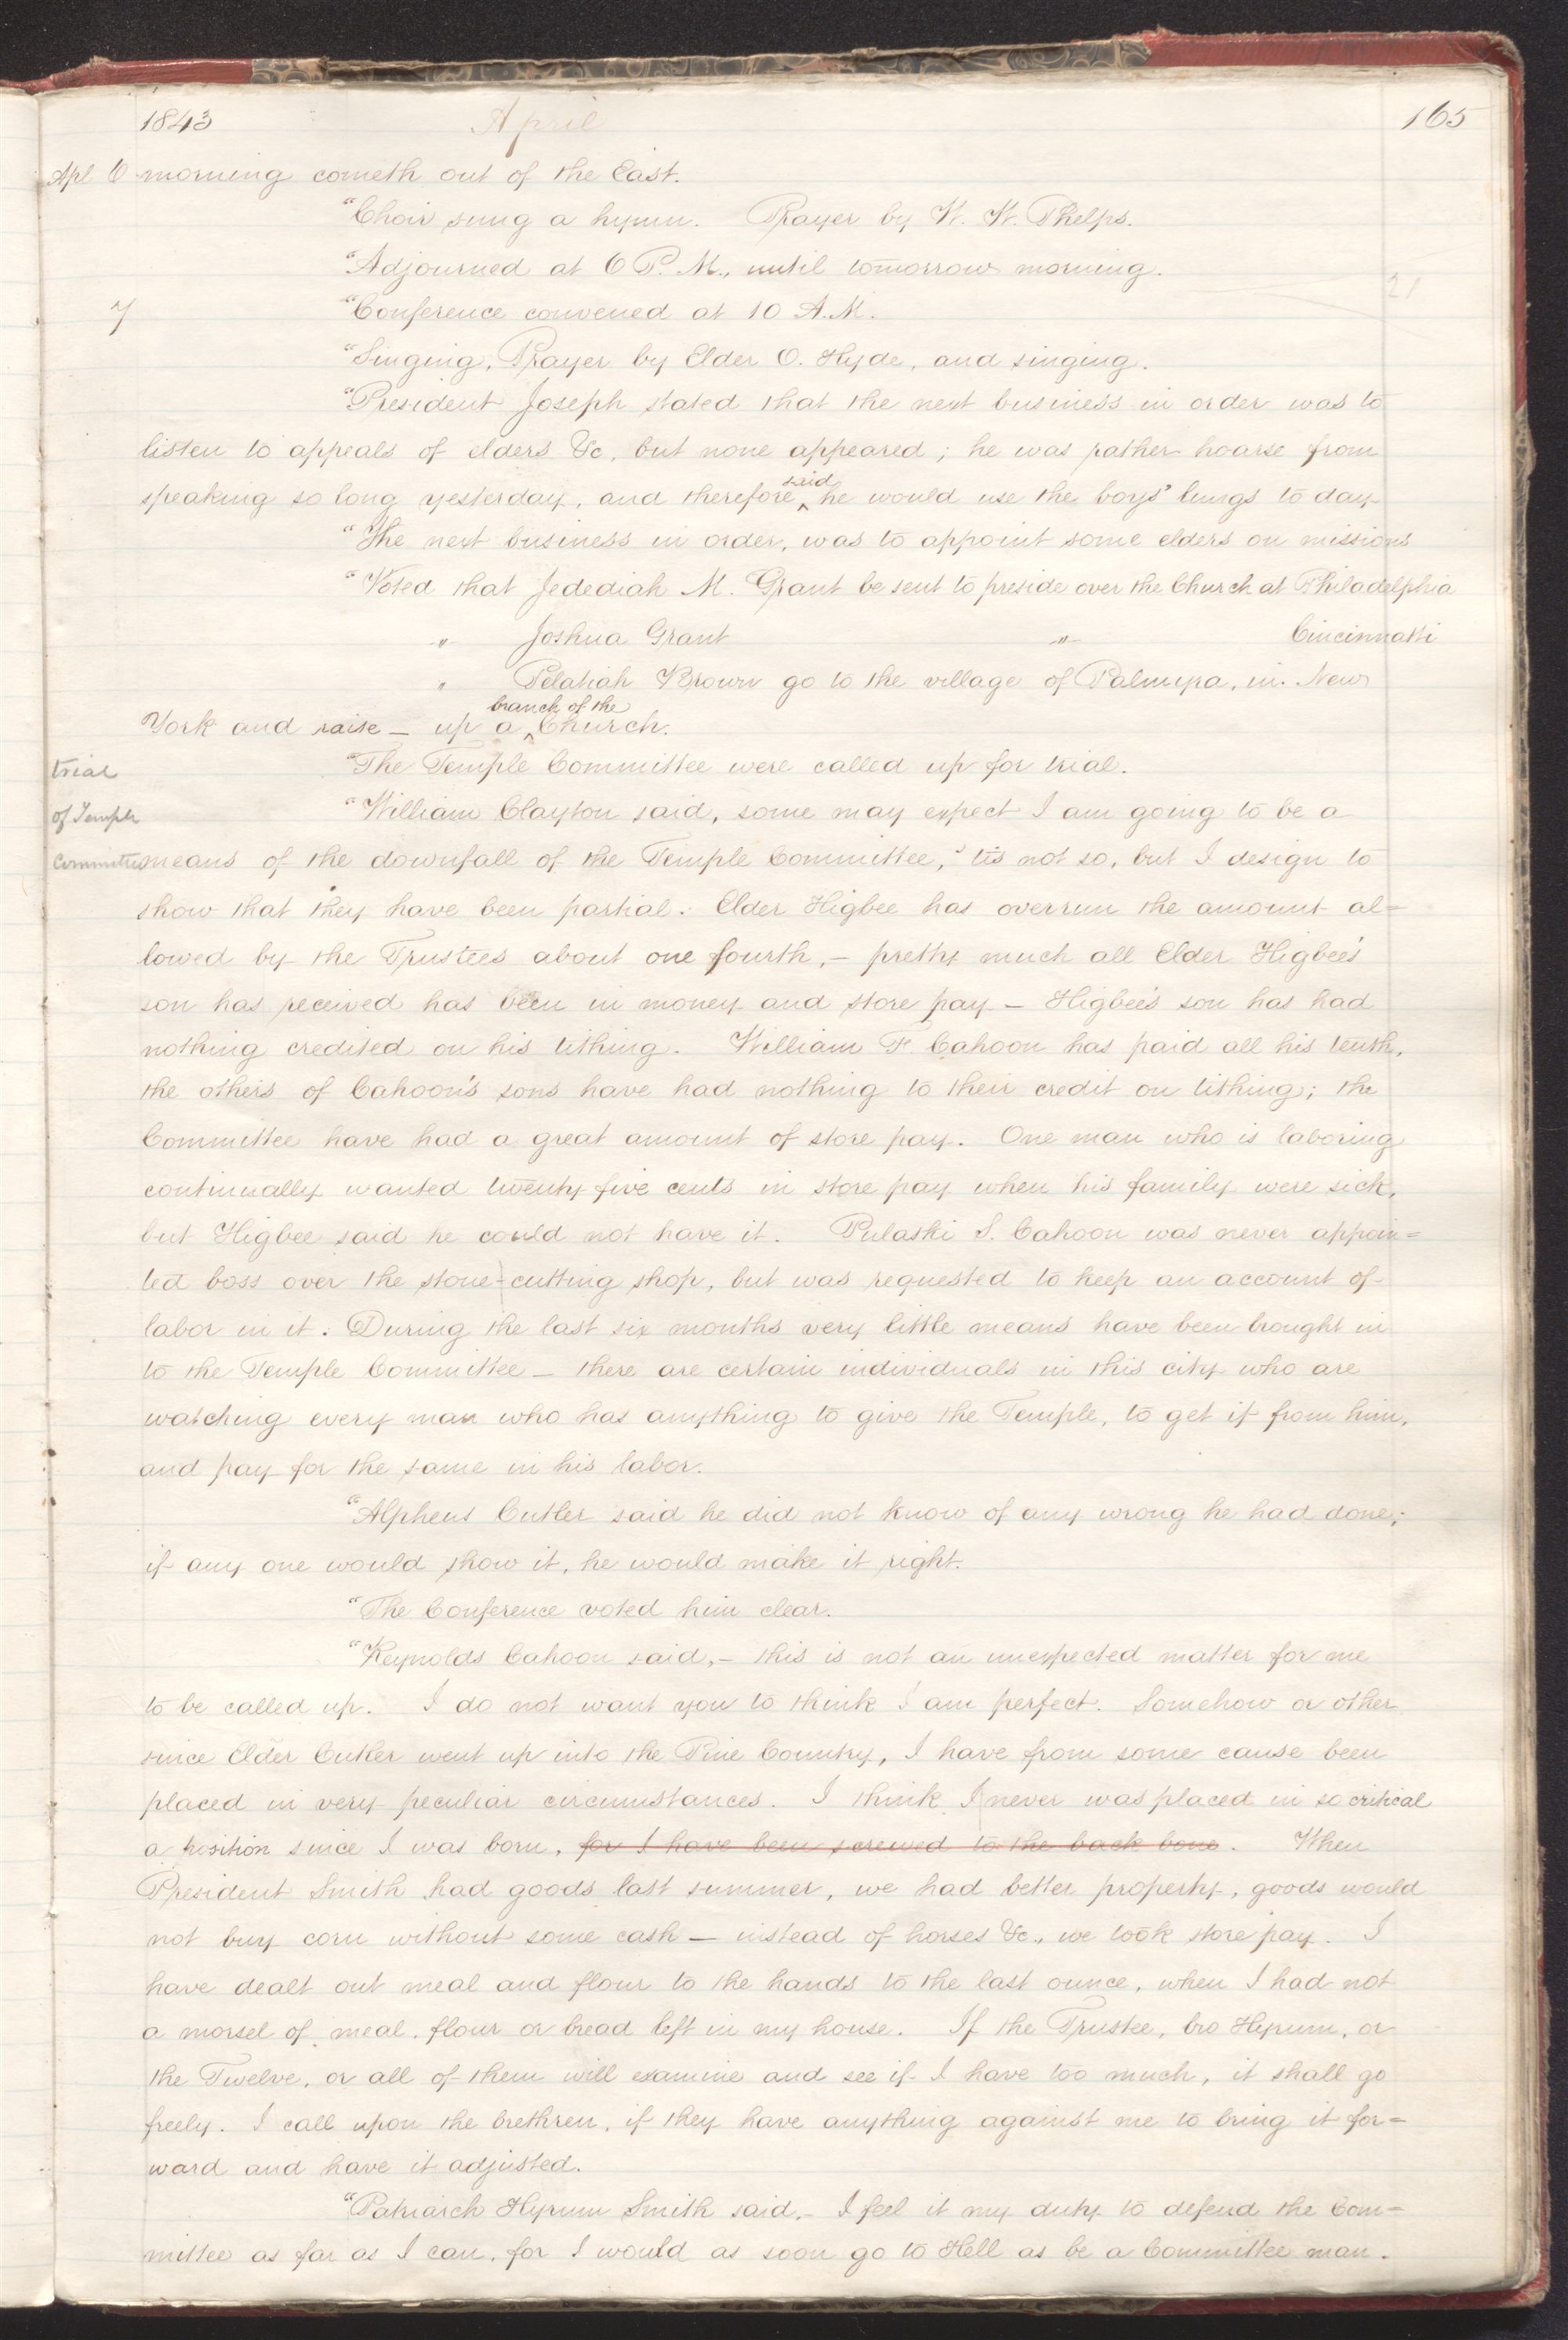 1843 April 165
Apl 6 morning cometh out of the East.
"Choir sung a hymn. Prayer by W. W. Phelps.
"Adjourned at 6 P. M., until tomorrow morning.
21
7 "Conference convened at 10 A.M.
"Singing, Prayer by Elder O. Hyde, and singing.
"President Joseph stated that the next business in order was to
listen to appeals of elders &c, but none appeared; he was rather hoarse from
said
speaking so long yesterday, and therefore ^ he would use the boys' lungs to day
"The next business in order, was to appoint some elders on missions
"Voted that Jedediah M. Grant be sent to preside over the Church at Philadelphia
" Joshua Grant " Cincinnatti
" Pelatiah Brown go to the village of Palmyra, in New
branch of the
York and raise — up a ^ Church.
trial "The Temple Committee were called up for trial.
of Temple "William Clayton said, some may expect I am going to be a
committee means of the downfall of the Temple Committee, 'tis not so, but I design to
show that they have been partial. Elder Higbee has overrun the amount al=
lowed by the Trustees about one fourth, — pretty much all Elder Higbee's
son has received has been in money and store pay — Higbee's son has had
nothing credited on his tithing. William F. Cahoon has paid all his tenth,
the others of Cahoon's sons have had nothing to their credit on tithing; the
Committee have had a great amount of store pay. One man who is laboring
continually wanted twenty five cents in store pay when his family were sick,
but Higbee said he could not have it. Pulaski S. Cahoon was never appoin=
ted boss over the stone-cutting shop, but was requested to keep an account of
labor in it. During the last six months very little means have been brought in
to the Temple Committee — there are certain individuals in this city who are
watching every man who has anything to give the Temple, to get it from him,
and pay for the same in his labor.
"Alpheus Cutler said he did not know of any wrong he had done;
if any one would show it, he would make it right.
"The Conference voted him clear.
"Reynolds Cahoon said, — this is not an unexpected matter for me
to be called up. I do not want you to think I am perfect. Somehow or other
since Elder Cutler went up into the Pine Country, I have from some cause been
placed in very peculiar circumstances. I think I never was placed in so critical
a position since I was born, for I have been screwed to the back bone. When
President Smith had goods last summer, we had better property, goods would
not buy corn without some cash — instead of horses &c., we took store pay. I
have dealt out meal and flour to the hands to the last ounce, when I had not
a morsel of meal, flour or bread left in my house. If the Trustee, bro Hyrum, or
the Twelve, or all of them will examine and see if I have too much, it shall go
freely. I call upon the brethren, if they have anything against me to bring it for=
ward and have it adjusted.
"Patriarch Hyrum Smith said, — I feel it my duty to defend the Com=
mittee as far as I can, for I would as soon go to Hell as be a Committee man.